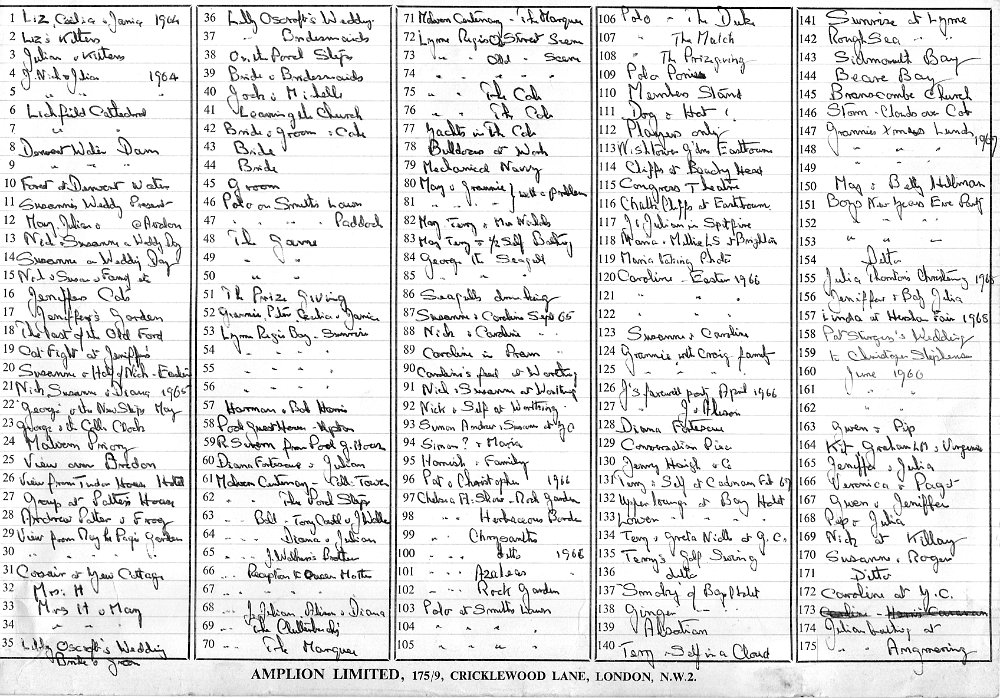 1 Liz, Cecilia & Jania 1964
2 Liz & Kittens
3 Julian & Kittens
4 J. Nich & Julian 1964
5 " "
6 Lichfield Cathedral
7 " "
8 Derwent Water Dam
9 " " "
10 Forest at Derwent Water
11 Susanne's Wedding Present
12 May, Julian &
13 Nich & Susanne on Wedding Day
14 Susanne on Wedding Day
15 Nich & Susan & Family etc
16 Jeniffers Cats
17 Jeniffer's Garden
18 The last of the Old Ford
19 Cat Fight at Jeniffer's
20 Susanne & Half of Nich - Easter
21 Nich Susanne & Diana 1965
22 George & the New Ships May
23 George & the Clock
24 Malvern Priory
25 View over Bredon
26 View from Tudor House Hotel
27 Group at Potters House
28 Andrew Potter & Frog
29 View from Garden
30 " " " "
31 Corsair at Yew Cottage
32 Mrs H
33 Mrs H & May
34 " "
35 Lilly Oscroft's Wedding
Bride & Groom
36 Lilly Oscroft's Wedding
37 " Bridesmaids
38 On the Porch Steps
39 Bride & Bridesmaids
40 Jock & Michelle
41 Leaving the Church
42 Bride & groom & Cake
43 Bride
44 Bride
45 Groom
46 Polo on Smiths Lawn
47 " " " Paddock
48 The Game
49 " "
50 " "
51 The Prize Giving
52 Grannie Peter Cecilia & Janie
53 Lyme Regis Bay - Sunrise
54 " " " "
55 " " " "
56 " " " "
57 Harman & Bob Harris
58 Pool Guest House - Upton
59 R. Severn from Pool G. House
60 Diana Fortescue & Julian
61 Malvern Centenary - Bell Tower
62 " " The Porch Steps
63 " " Bill - Tony & J. Walker
64 " " Diana & Julian
65 " " J. Brother
66 " " Reception to Queen Mother
67 " " "
68 " " J, Julian, Alison & Diana
69 " " The
70 " " The Marquee
71 Malvern Centenary - The Marquee
72 Lyme Regis Street Scene
73 " " Old " Scene
74 " " " " "
75 " " The Cob
76 " " The Cob
77 Yachts in The Cob
78 Bulldozer at Work
79 Mechanical Navvy
80 May & Grannie } with a problem
81 " " "
82 May Terry & Mrs
83 May Terry & 1/2 Self Boating
84 George the Seagull
85 " " "
86 Seagulls drinking
87 Susanne & Caroline Sept 65
88 Nich & Caroline " "
89 Caroline in Pram "
90 Caroline's feed at Worthing
91 Nich & Susanne at Worthing
92 Nick & Self at Worthing
93 Simon Andrew & Susan at
94 Simon? & Maria
95 Hamish & Family
96 Pat & Christopher 1966
97 Chelsea Fl. Show - Rock Garden
98 " " Herbaceous Border
99 " " Chrysanths
100 " " ditto 1966
101 " " Azaleas
102 " " Rock Garden
103 Polo at Smiths Lawn
104 " " " "
105 " " " "
106 Polo - The Duke
107 " The Match
108 " The Prizegiving
109 Polo Ponies
110 Members Stand
111 Dog & Hat !
112 Players only
113 Wishtower Gdns Eastbourne
114 Cliffs at Beachy Head
115 Congress Theatre
116 Chalk Cliffs at Eastbourne
117 J & Julian in Spitfire
118 Maria & Millie at Brighton
119 Maria taking Photo
120 Caroline - Easter 1966
121 " " "
122 " " "
123 Susanne & Caroline
124 Grannies with Craig family
125 " " " "
126 J's farewell party April 1966
127 " J & Alison
128 Diana Fortescue
129 Conversation Piece
130 Jenny Haigh & Co
131 Terry & Self at Cadnam Feb 67
132 Upper lounge at Bay Hotel
133 Lower " " "
134 Terry & Greta Nicholls at G.C.
135 Terry's Golf Swing
136 ditto
137 Smoky of Bay Hotel
138 Ginger "
139 Alsatian
140 Terry & Self in a Cloud
141 Sunrise at Lyme
142 Rough Sea " "
143 Sidmouth Bay
144 Beare Bay
145 Branscombe Church
146 Storm - Clouds over Cob
147 Grannies Xmess Lunch, 1967
148 " " "
149 " " "
150 May & Betty Hillman
151 Boys New Years Eve Party
152 " " "
153 " " "
154 Ditto
155 Julia Thorntons Christening 1968
156 Jeniffer & Bob & Julia
157 Linda at Fair 1968
158 Pat Wedding
159 to Christopher Stephens
160 June 1966
161 " "
162 " "
163 Gwen & Pip
164 Kit, Graham & Virginia
165 Jeniffer & Julia
166 Veronica &
167 Gwen & Jeniffer
168 Pep & Julia
169 Nick at Killay
170 Susanne & Roger
171 Ditto
172 Caroline at Y.C.
173
174 Julian bathing at
175 " " Angmering
AMPLION LIMITED, 175/9, CRICKLEWOOD LANE, LONDON, N.W.2.